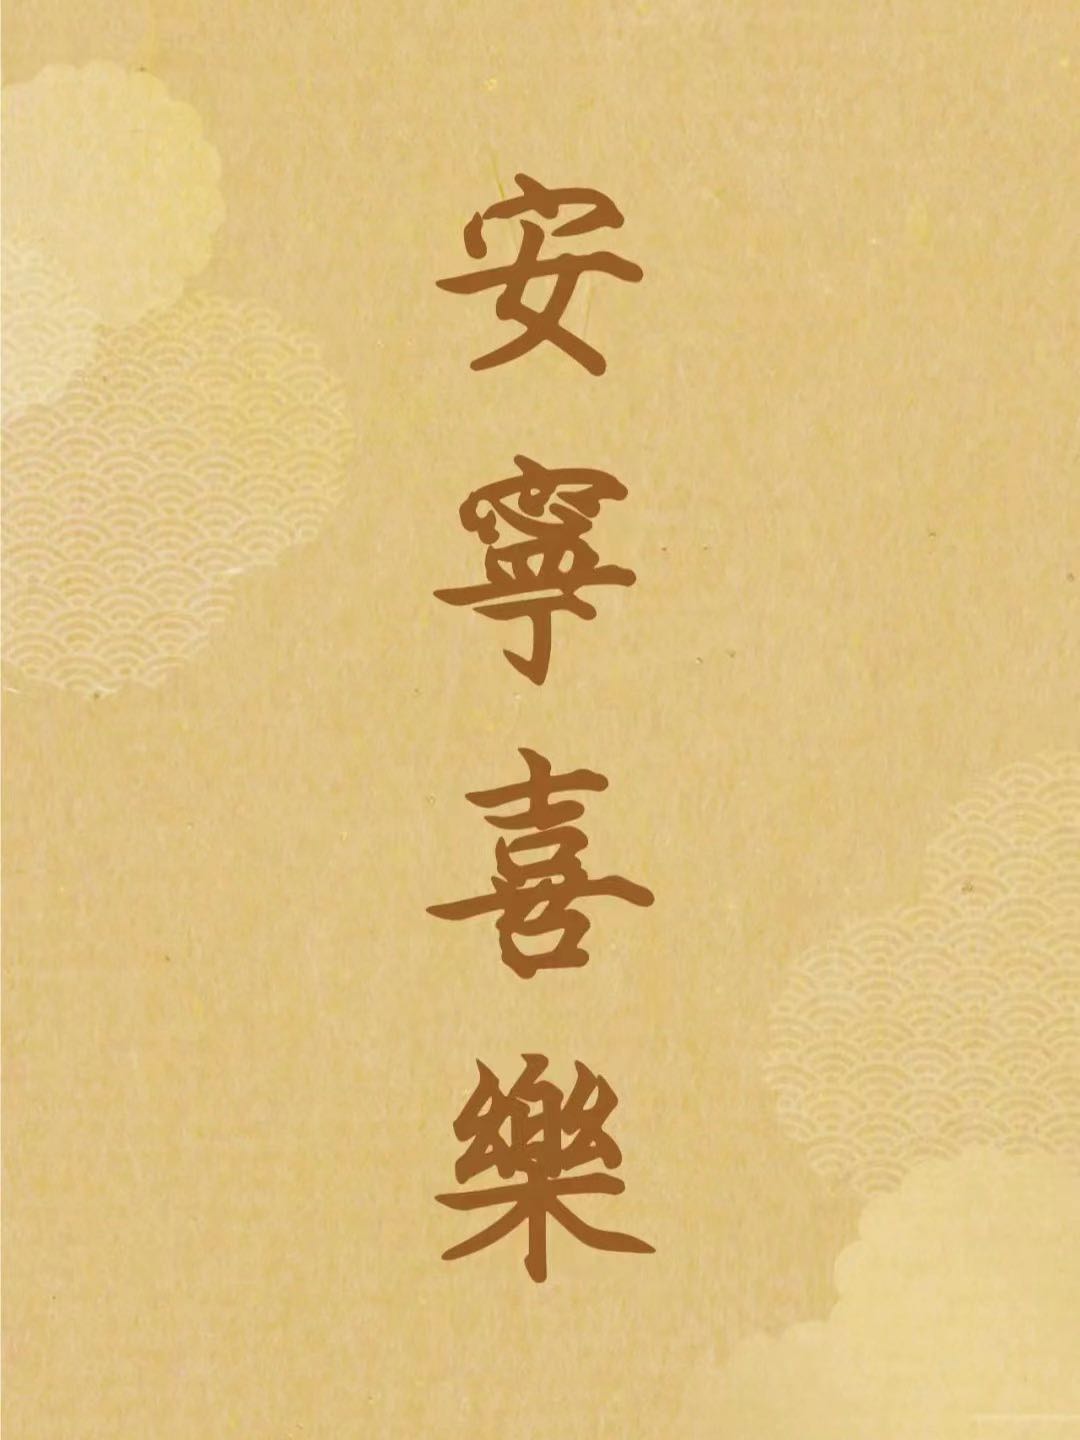 安寧喜樂